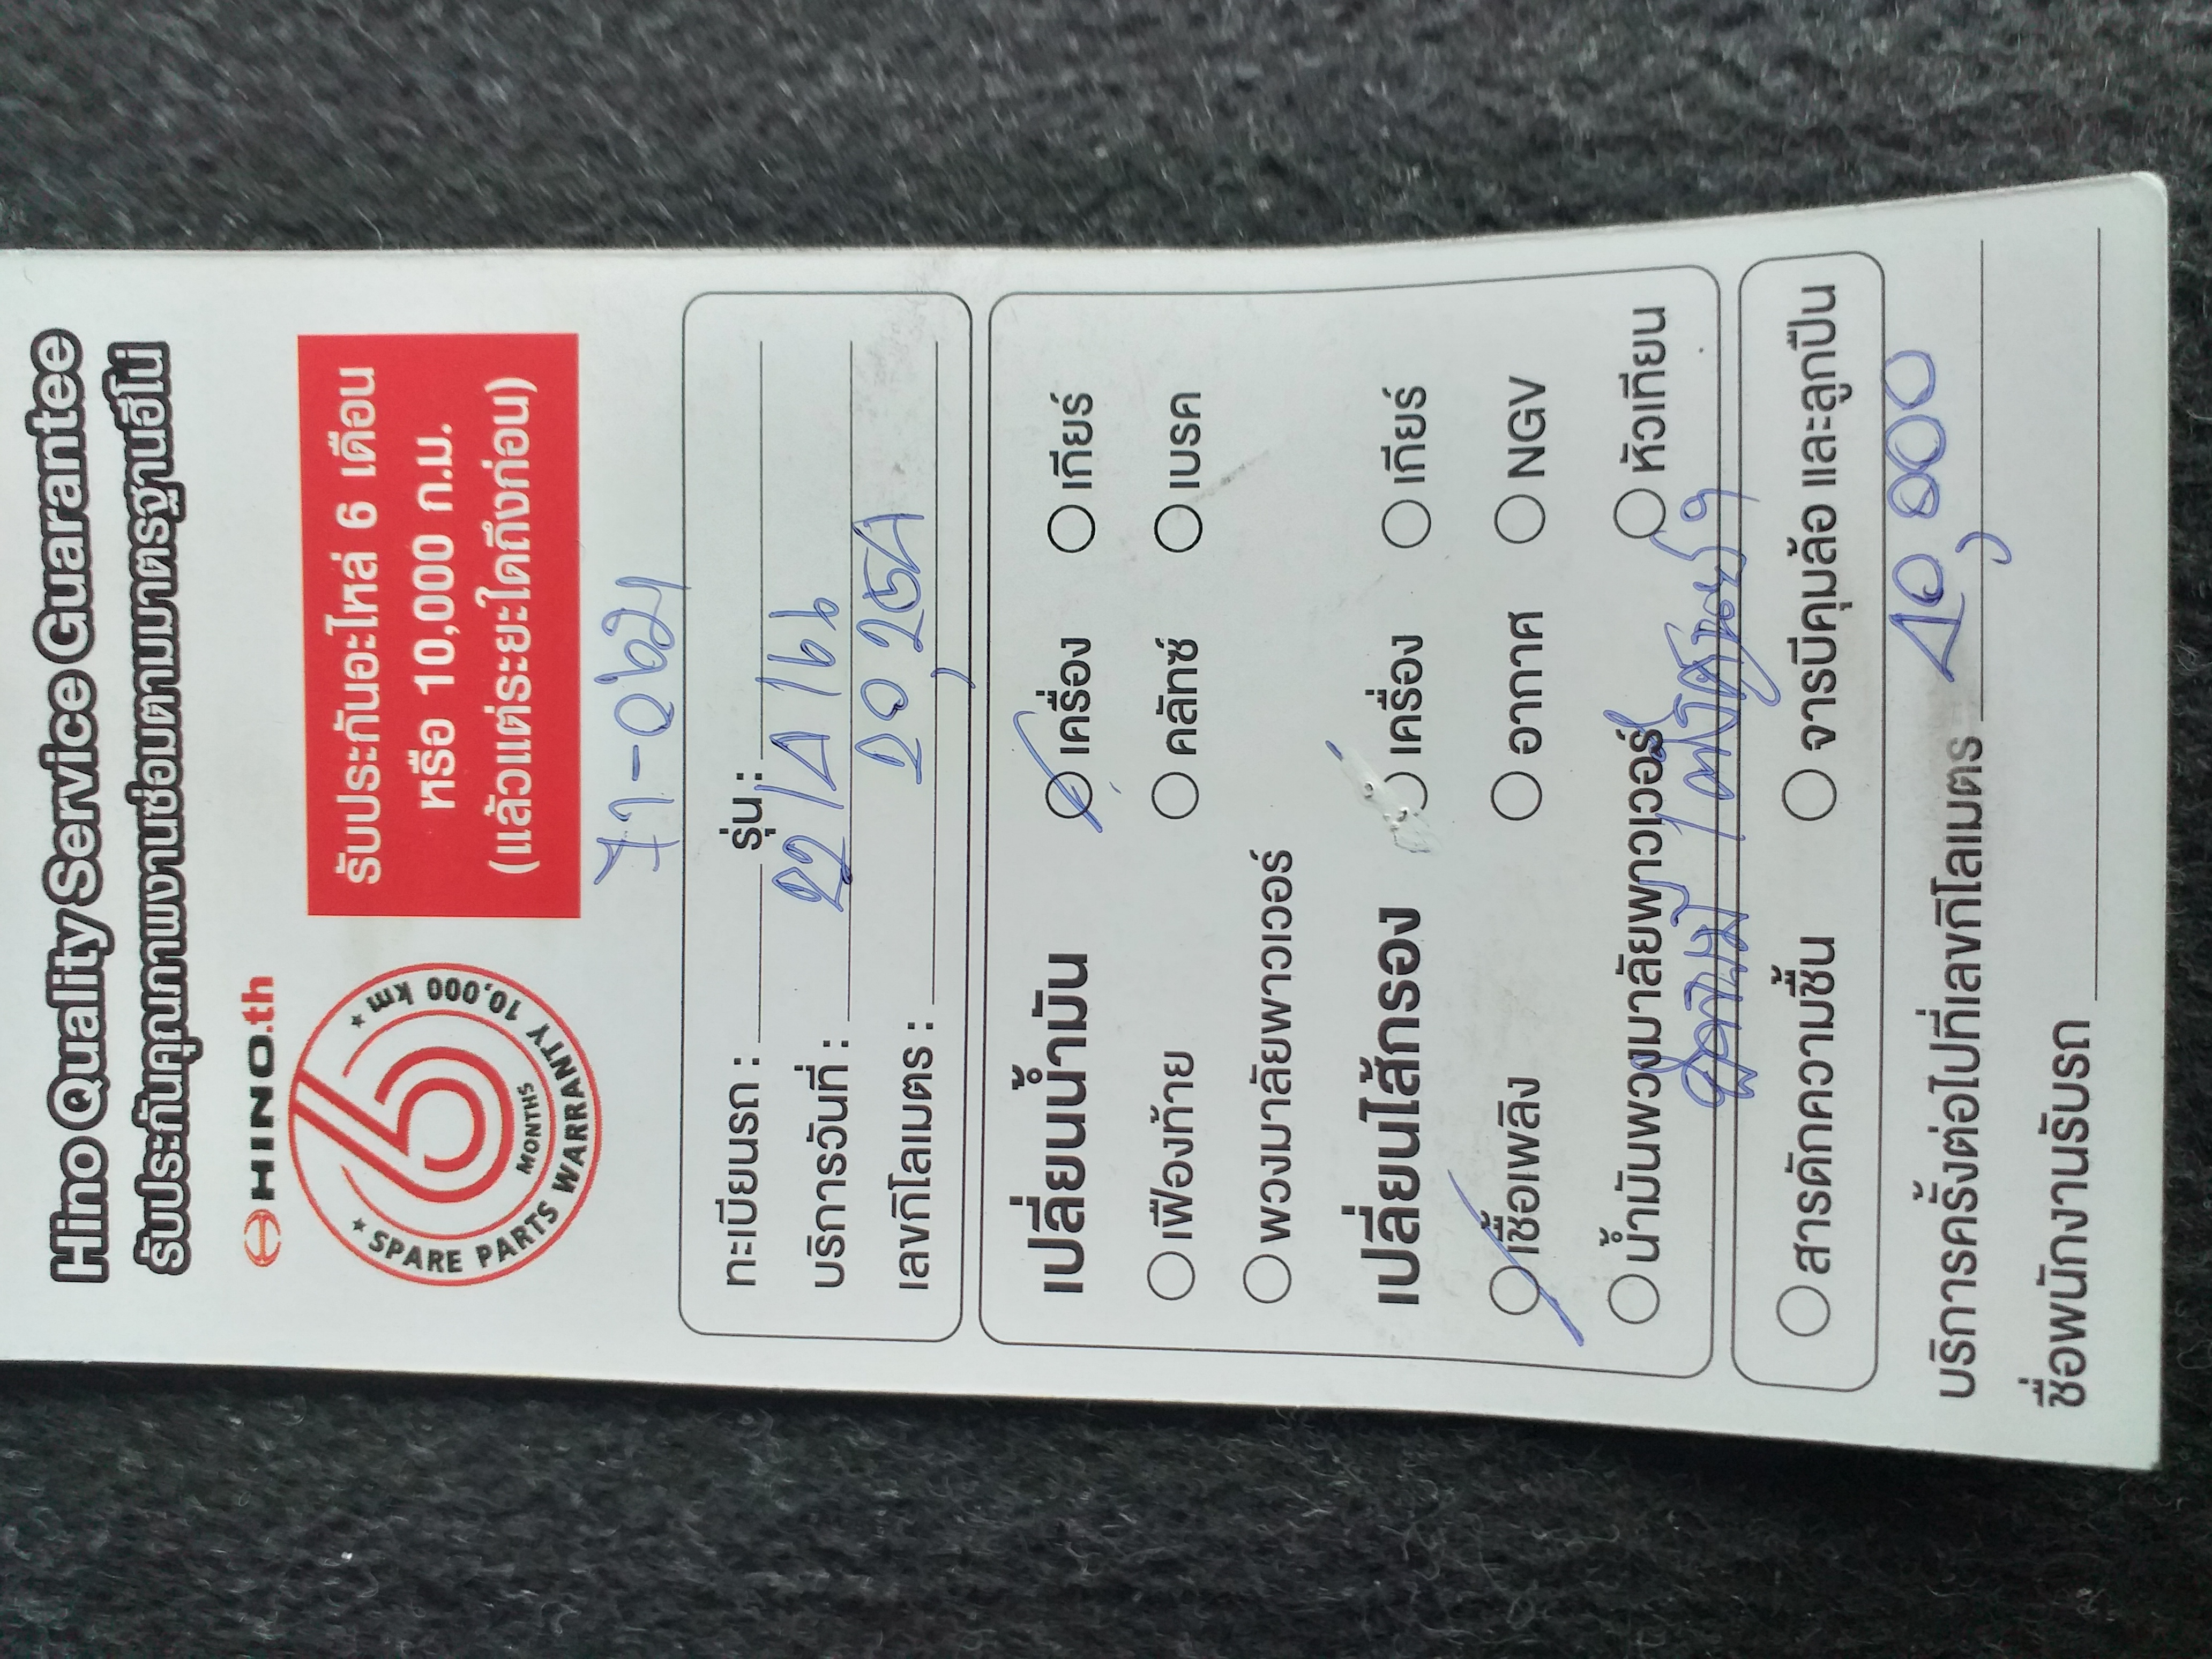 Hino Quality Service Guarantee
รับประกันคุณภาพงานซ่อมตามมาตรฐานฮีโน่
HINO.th
6
MONTHS
SPARE PARTS WARRANTY 10,000 km
รับประกันอะไหล่ 6 เดือน
หรือ 10,000 ก.ม.
(แล้วแต่ระยะใดถึงก่อน)
71-0621
ทะเบียนรถ : รุ่น :
บริการวันที่ : 22/4/66
เลขกิโลเมตร : 20,254
เปลี่ยนน้ำมัน เครื่อง เกียร์
เฟืองท้าย คลัทซ์ เบรค
พวงมาลัยพาวเวอร์
เปลี่ยนไส้กรอง เครื่อง เกียร์
เชื้อเพลิง อากาศ NGV
น้ำมันพวงมาลัยพาวเวอร์ หัวเทียน
อัดจารบี /
สารดักความชื้น จารบีคุมล้อ และลูกปืน
บริการครั้งต่อไปที่เลขกิโลเมตร 40,000
ชื่อพนักงานรับรถ